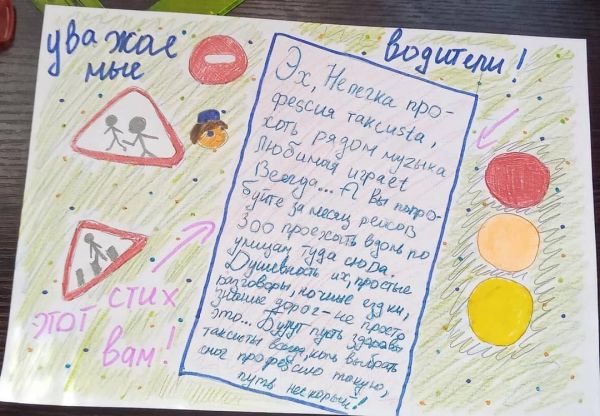 уважае
мые
водители!
Эх, Нелегка про-
фессия таксиста,
хоть рядом музыка
Любимая играет
Всегда... А Вы попро-
буйте за месяц рейсов
300 проехать вдоль по
улицам туда сюда.
Душевность их, простые
разговоры, ночные ездки,
знание дорог - не просто
это... Будут пусть здоровы
таксисты всегда, коль выбрать
смог профессию такую,
путь нескорый!
этот стих
вам!